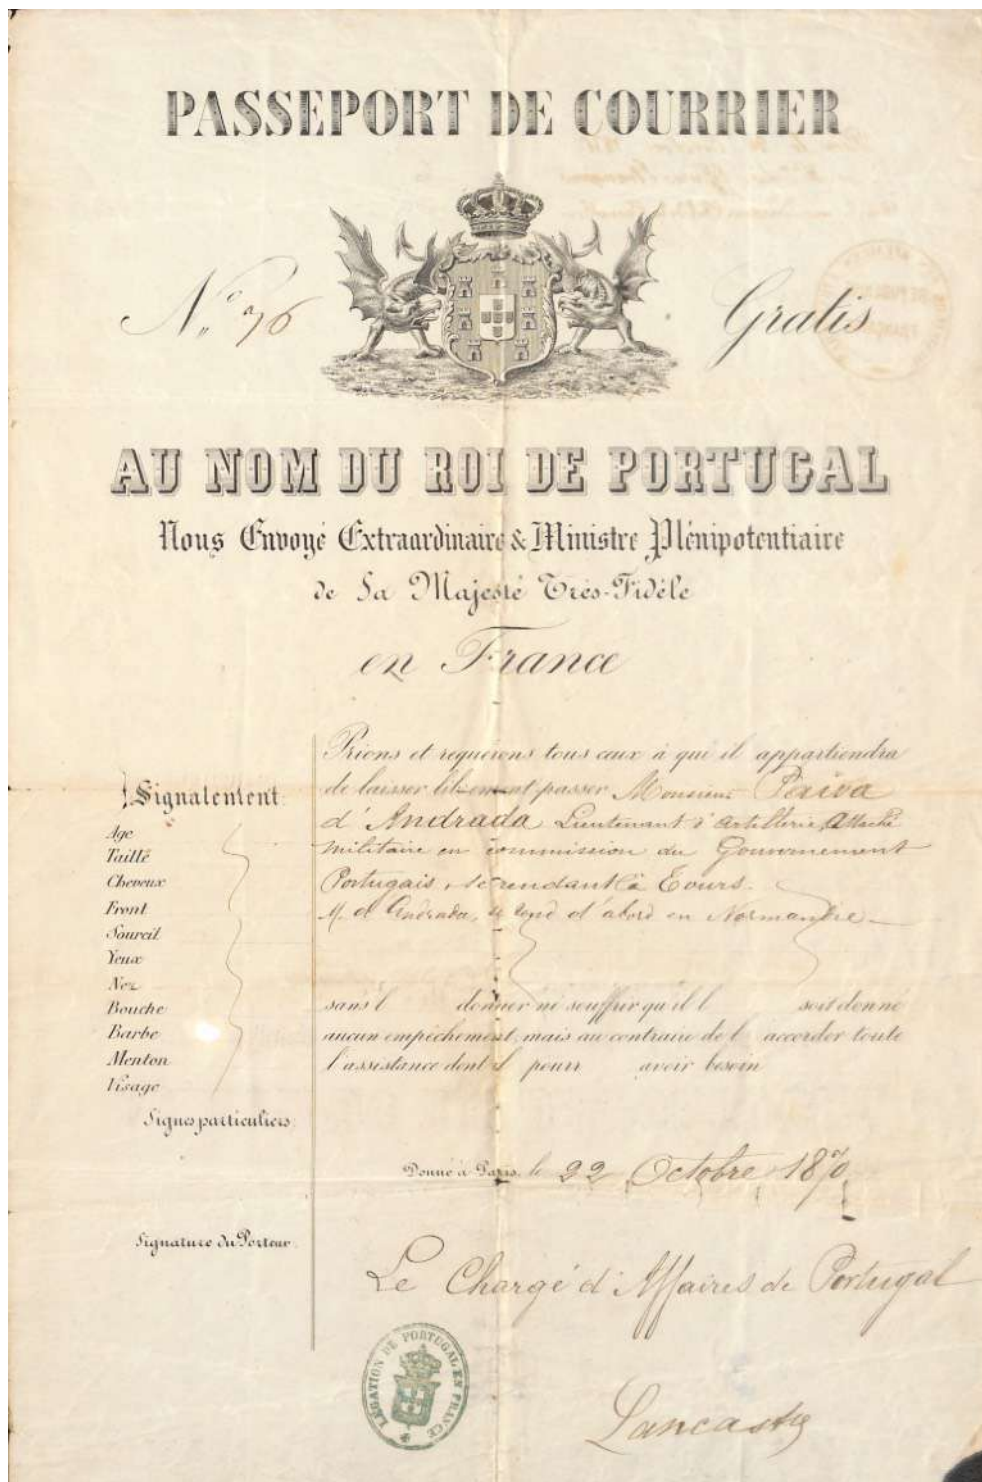 PASSEPORT DE COURRIER
N.º 76
Gratis
AU NOM DU ROI DE PORTUGAL
Nous Envoyé Extraordinaire & Ministre Plénipotentiaire
de Sa Majesté Très-Fidèle
en France
Signalement
Age
Taille
Cheveux
Front
Sourcil
Yeux
Nez
Bouche
Barbe
Menton
Visage
Signes particuliers
Signature du Porteur
Prions et requérons tous ceux à qui il appartiendra
de laisser librement passer Monsieur Paiva
d'Andrada Lieutenant d'artillerie, attaché
militaire en commission du Gouvernement
Portugais, se rendant à Tours.
M. d'Andrada, se rend d'abord en Normandie
sans l donner ni souffrir qu'il l soit donné
aucun empêchement, mais au contraire de l accorder toute
l'assistance dont il pourr avoir besoin
Donné à Paris, le 22 Octobre 1870
Le Chargé d'Affaires de Portugal
LEGATION DE PORTUGAL EN FRANCE
Lancastre